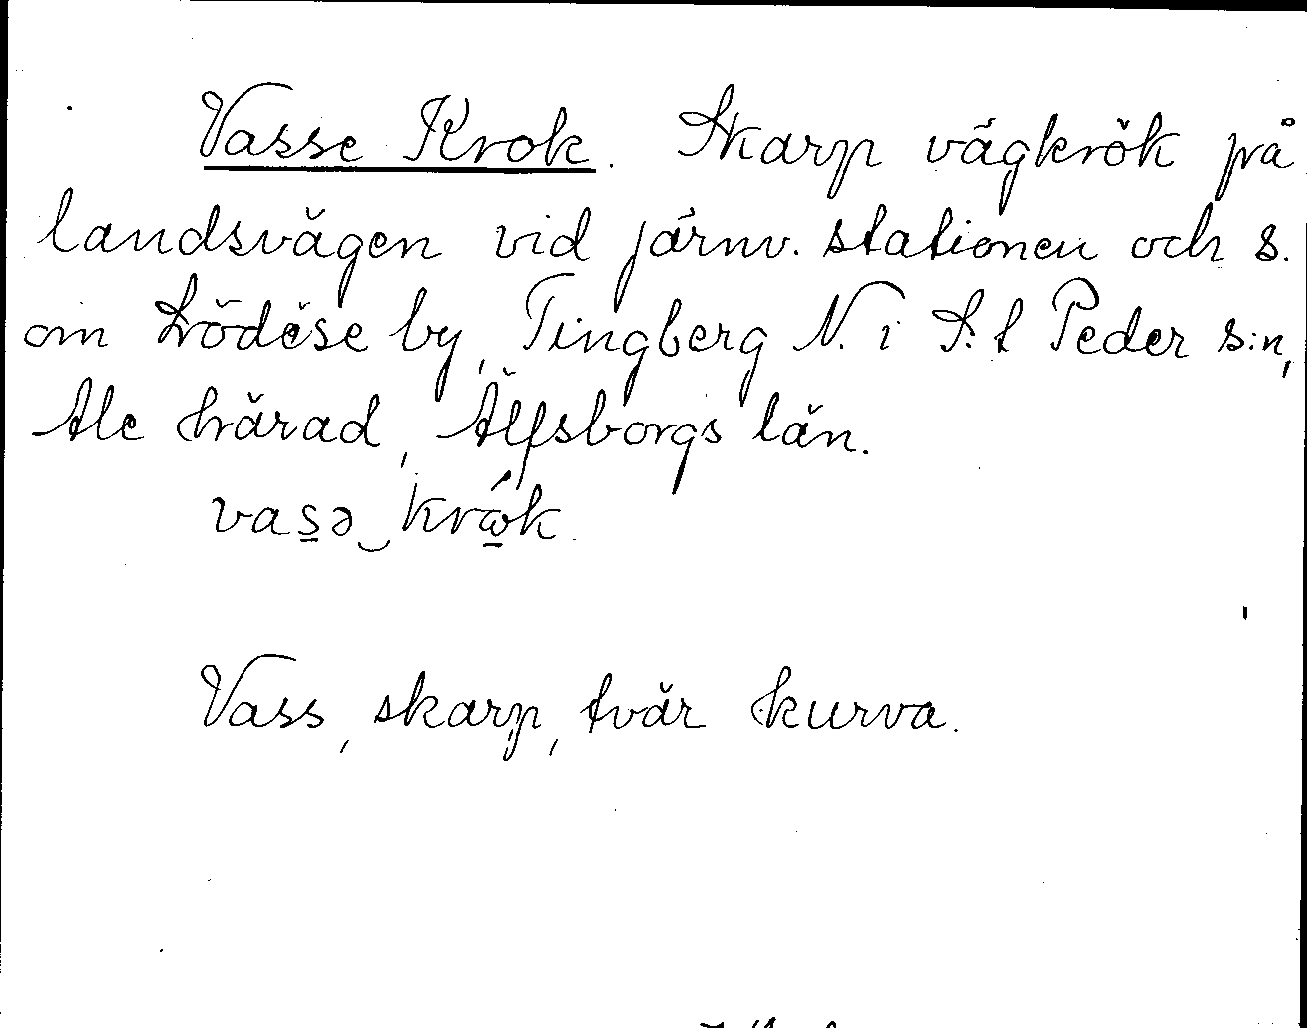 Vasse Krok. Skarp vägkrök på
landsvägen vid järnv. stationen och s.
om Lödöse by, Tingberg N. i S:t Peder s:n,
Ale härad, Älfsborgs län.
vas̲ə‿krώ̲k.
Vass, skarp, tvär kurva.